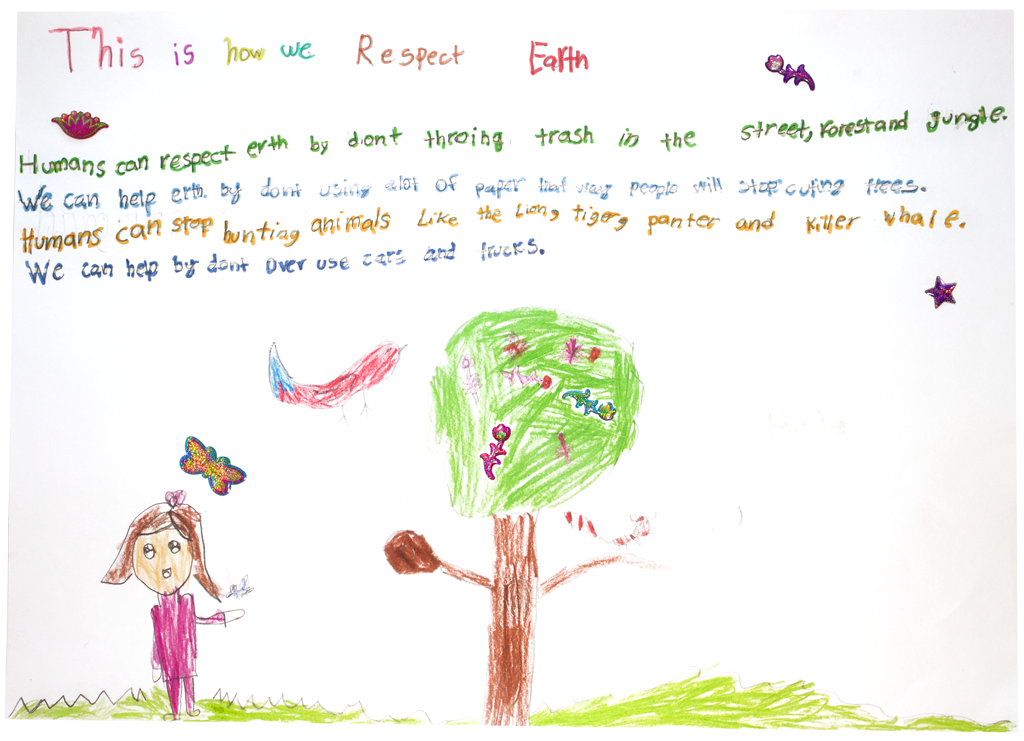 This is how we Respect Earth
Humans can respect erth by dont throing trash in the street, forest and jungle.
We can help erth. by dont using alot of paper that way people will stop cuting trees.
Humans can stop hunting animals Like the Liong tigerg panter and killer whale.
We can help by dont over use cars and trucks.